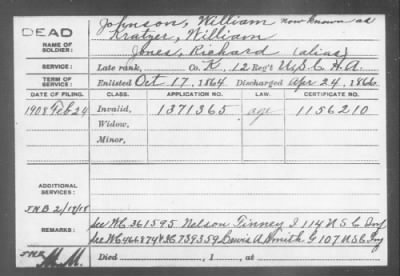 DEAD
Johnson, William now known as
Kratzer, William
NAME OF SOLDIER: Jones, Richard (alias)
SERVICE: Late rank, Co. K, 12 Reg't U.S.C.H.A.
TERM OF SERVICE: Enlisted Oct 17, 1864. Discharged Apr 24, 1866.
DATE OF FILING. CLASS. APPLICATION NO. LAW. CERTIFICATE NO.
1908 Feb 24 Invalid, 1371365 age 1156210
Widow,
Minor,
ADDITIONAL SERVICES:
REMARKS: See WC 361595 Nelson Finney I 114 U S C Inf
See WC 466874 & XC 739359 Lewis A Smith G 107 U S C Inf
Died , 1 , at